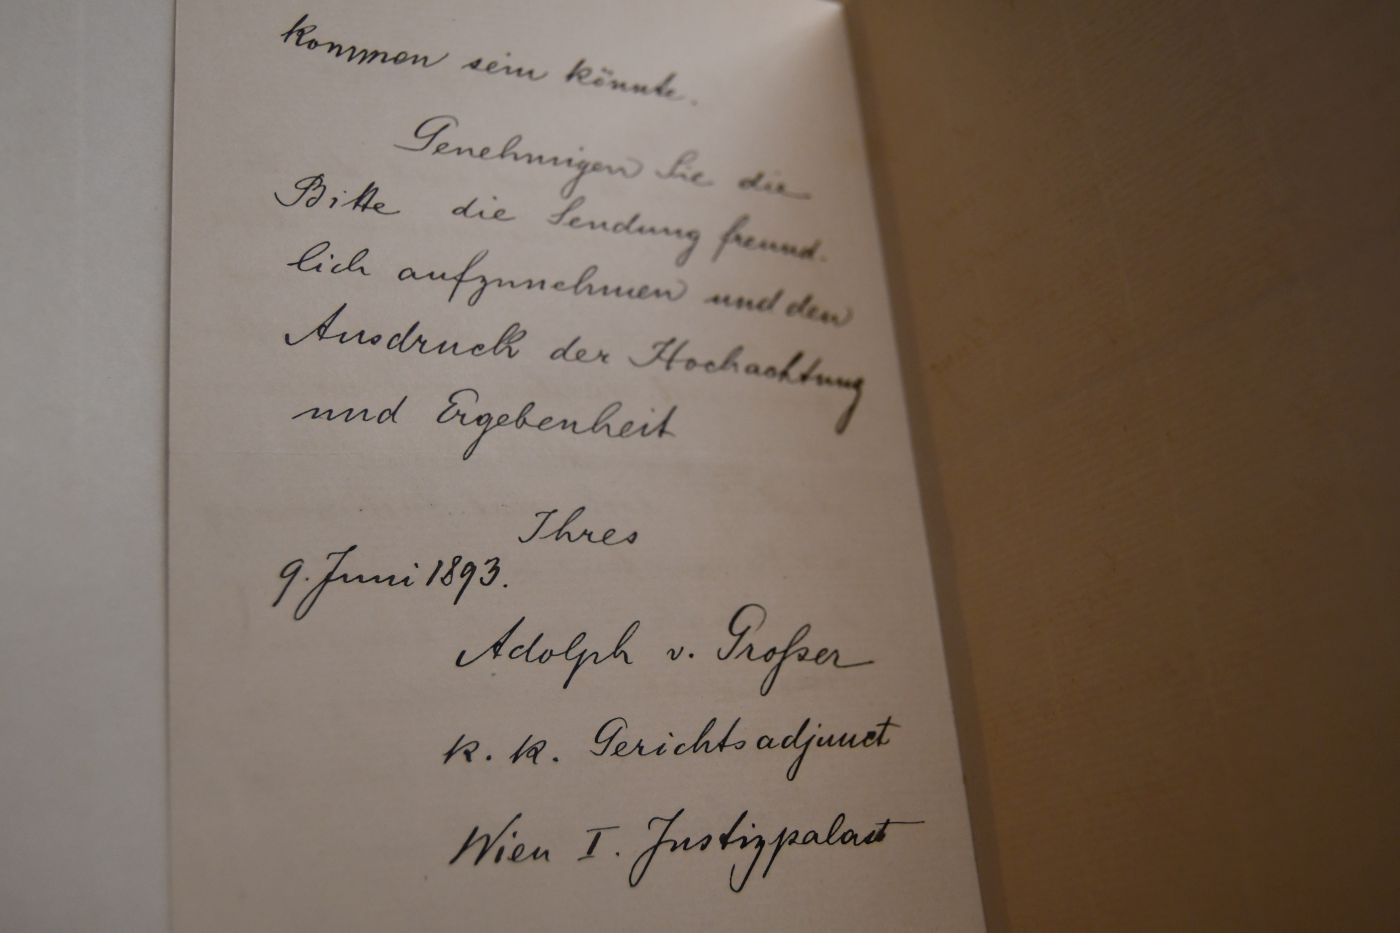 kommen sein könnte.
Genehmigen Sie die
Bitte die Sendung freund-
lich aufzunehmen und den
Ausdruck der Hochachtung
und Ergebenheit
Ihres
9. Juni 1893.
Adolph v. Großer
k. k. Gerichtsadjunct
Wien I. Justizpalast